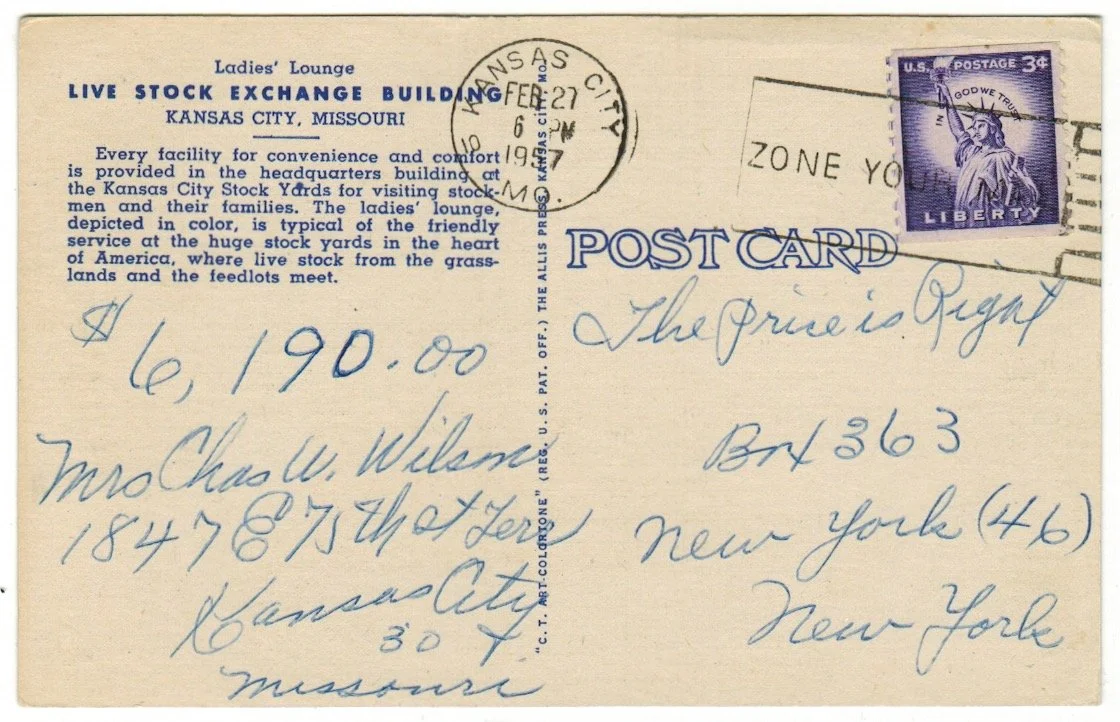 Ladies' Lounge
LIVE STOCK EXCHANGE BUILDING
KANSAS CITY, MISSOURI
Every facility for convenience and comfort
is provided in the headquarters building at
the Kansas City Stock Yards for visiting stock-
men and their families. The ladies' lounge,
depicted in color, is typical of the friendly
service at the huge stock yards in the heart
of America, where live stock from the grass-
lands and the feedlots meet.
$6,190.00
Mrs Chas W. Wilson
1847 E 75th st Terr
Kansas City
30
Missouri
"C. T. ART-COLORTONE" (REG. U. S. PAT. OFF.) THE ALLIS PRESS, KANSAS CITY, MO.
KANSAS CITY
FEB 27
6 PM
1957
MO.
ZONE YOUR
U.S. POSTAGE 3¢
IN GOD WE TRUST
LIBERTY
POST CARD
The Price is Right
Box 363
New York (46)
New York